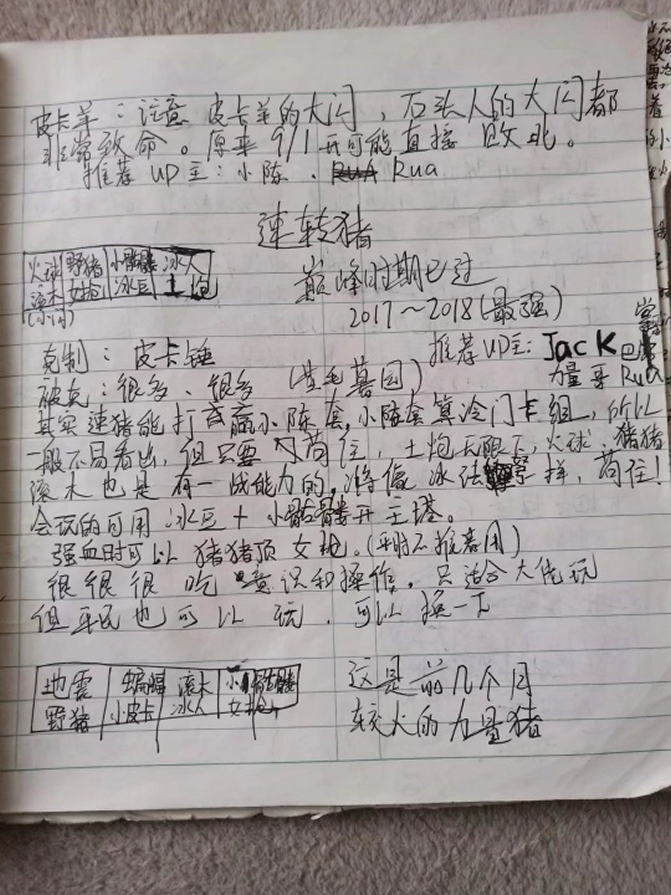 皮卡羊：注意 皮卡羊的大闪，石头人的大闪都
非常致命。原来 9/1 开可能直接 败北。
推荐 UP 主：小陈、Rua
速转猪
火球 野猪 小骷髅 冰人
滚木 女枪 冰豆 土炮
(小闪)
巅峰时期已过
2017～2018(最强)
克制：皮卡锤
推荐 UP主：Jack 巴
被克：很多、很多 (黄毛墓园)
力量哥 Rua
其实 速猪能打 赢小陈套，小陈套算冷门卡组，所以
一般不易看出，但只要 苟住，土炮无限下，火球、猪猪
滚木 也是 有一战能力的，将像 冰法 一样，苟住！
会玩的可用 冰豆 + 小骷髅开主塔。
强血时可以 猪猪顶 女枪。(平时不推荐用)
很 很 很 吃 意识和操作，只适合大佬玩
但 平民 也 可 以 玩，可以 换一下
地震 蝙蝠 滚木 小骷髅
野猪 小皮卡 冰人 女枪
这是前几个月
较火的力量猪